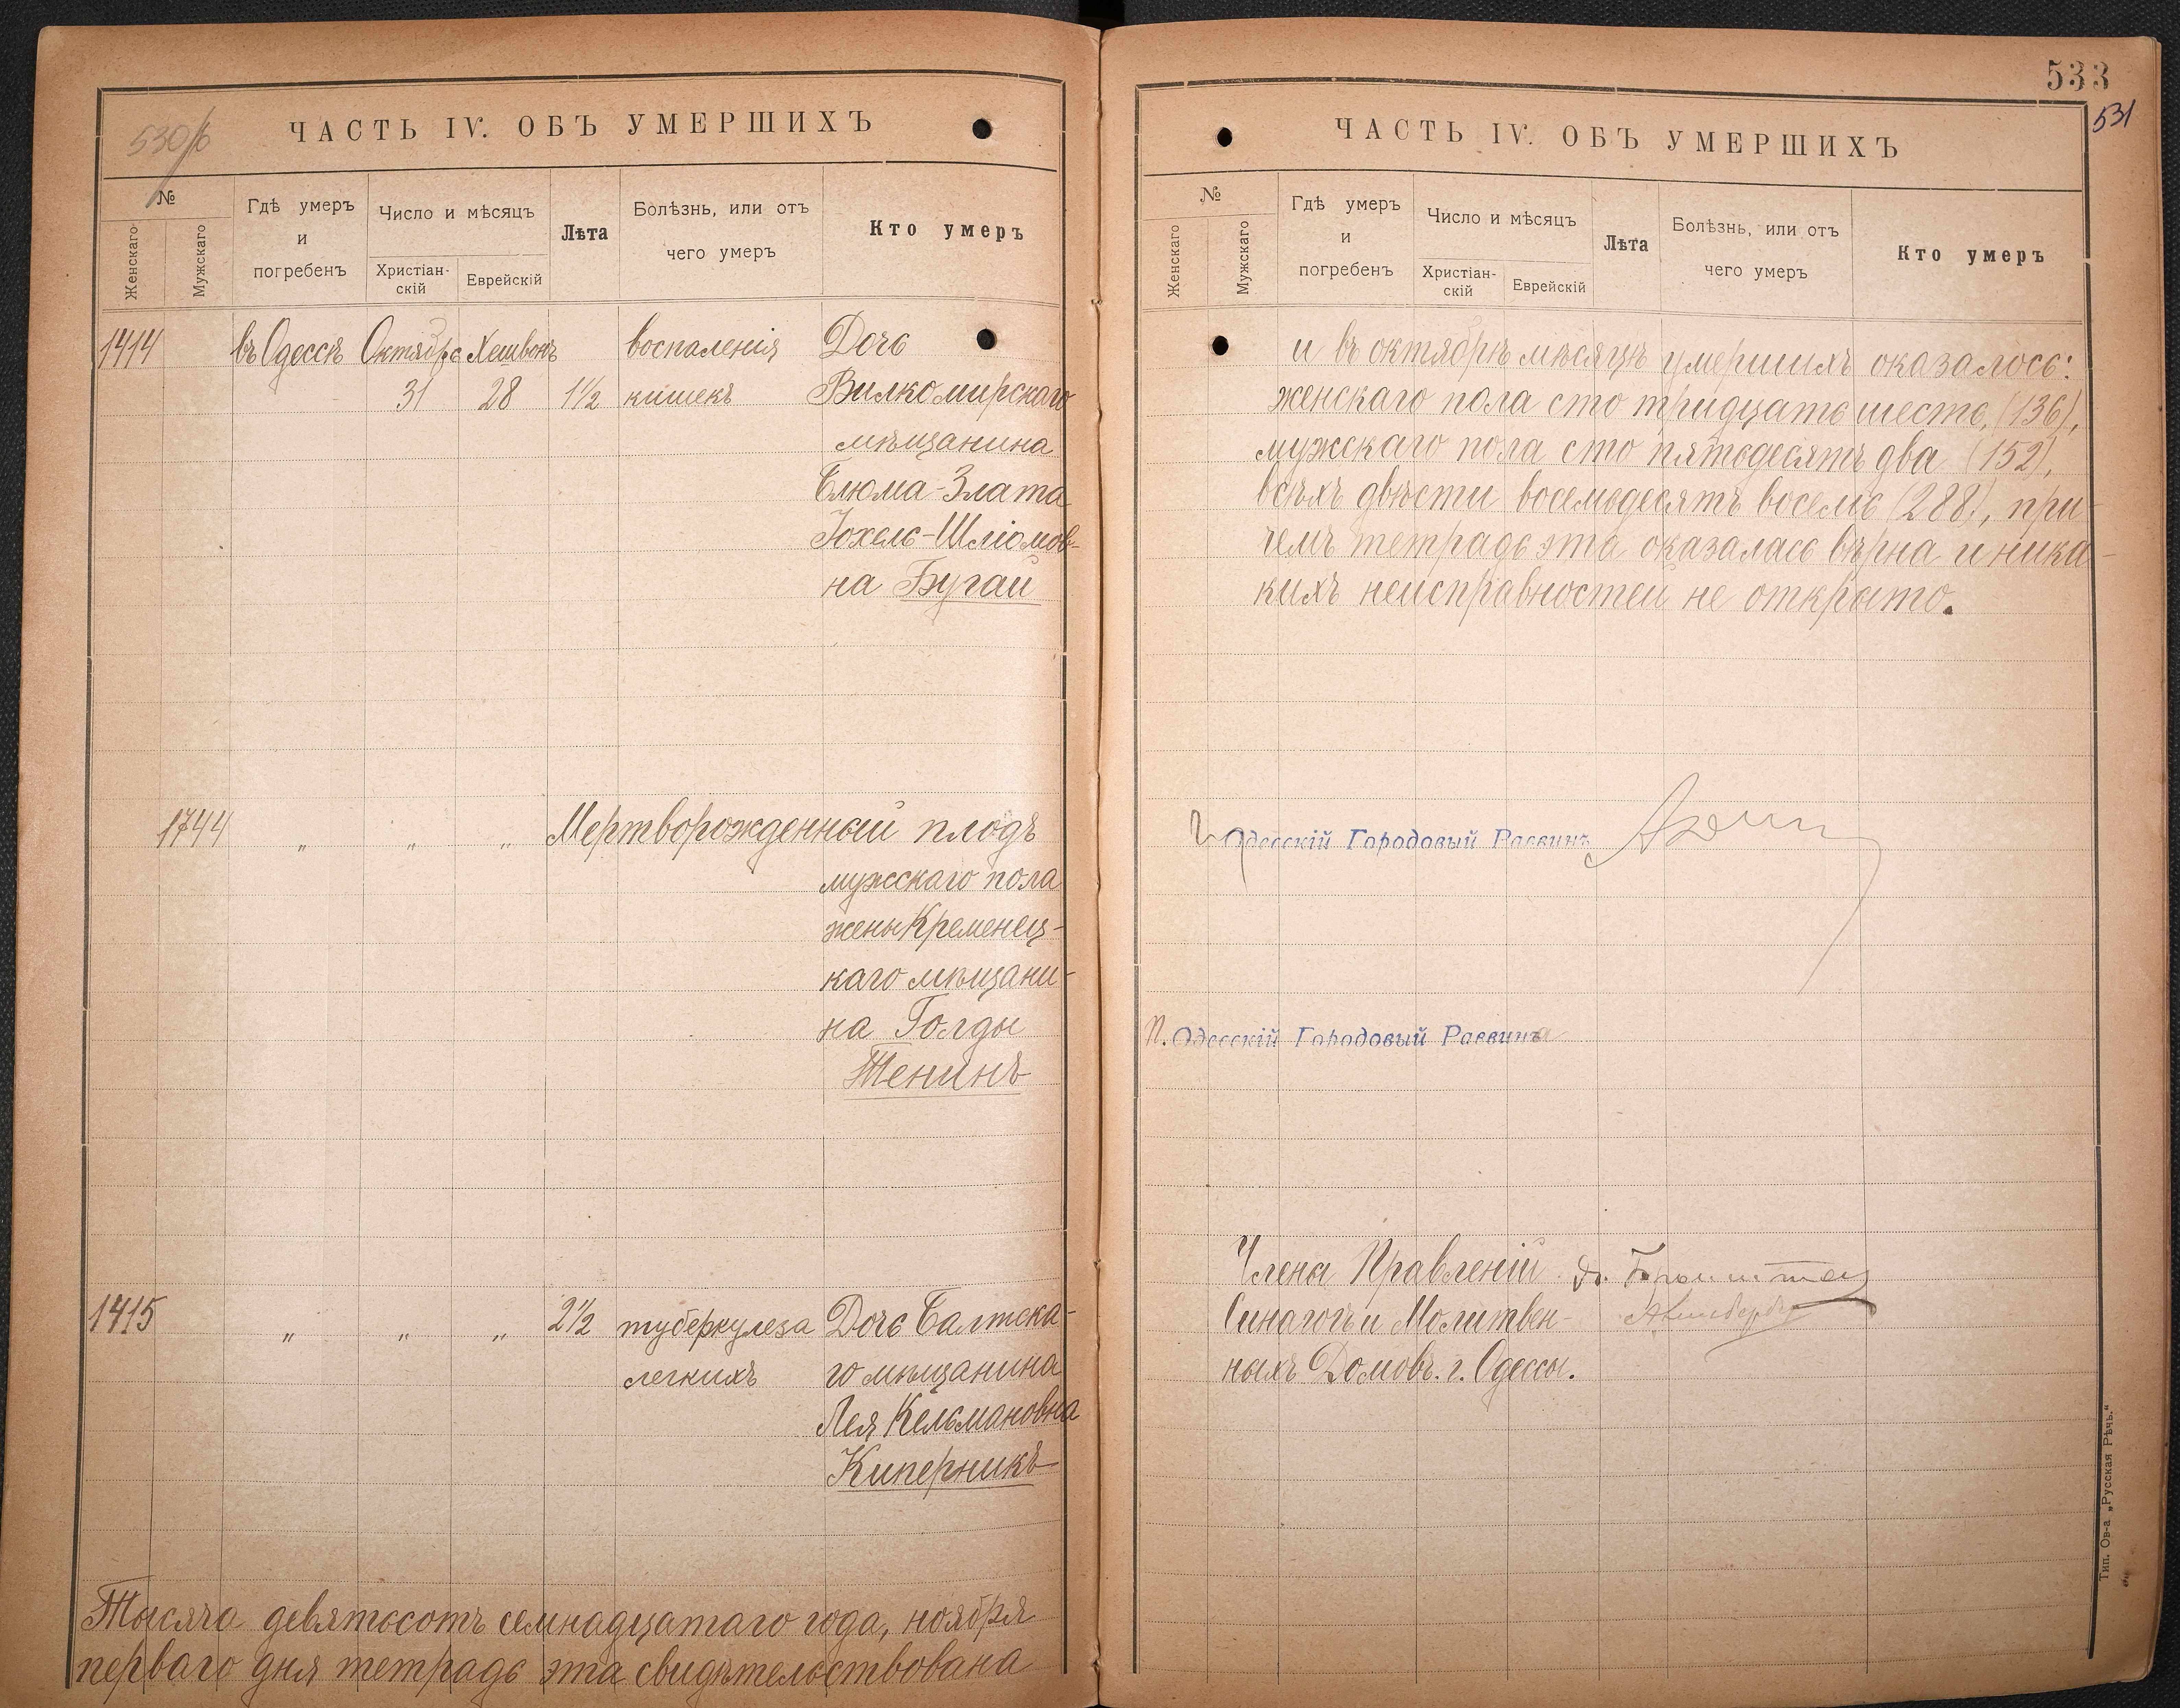 530/б
ЧАСТЬ IV. ОБЪ УМЕРШИХЪ
№
Женскаго
Мужскаго
Гдѣ умеръ
и
погребенъ
Число и мѣсяцъ
Христіан-
скій
Еврейскій
Лѣта
Болѣзнь, или отъ
чего умеръ
Кто умеръ
1414 въ Одессѣ Октября Хешвонъ воспаленія Дочь
31 28 1½ кишекъ Вилкомирскаго
мѣщанина
Блюма-Злата
Іохель-Шліомов-
на Бугай
1744 „ „ „ Мертворожденный плодъ
мужскаго пола
жены Кременец-
каго мѣщани-
на Голды
Тенинъ
1415 „ „ „ 2½ туберкулеза Дочь Балтска-
легкихъ го мѣщанина
Лея Кельмановна
Киперникъ
Тысяча девятьсотъ семнадцатаго года, ноября
перваго дня тетрадь эта свидѣтельствована
533
531
ЧАСТЬ IV. ОБЪ УМЕРШИХЪ
№
Женскаго
Мужскаго
Гдѣ умеръ
и
погребенъ
Число и мѣсяцъ
Христіан-
скій
Еврейскій
Лѣта
Болѣзнь, или отъ
чего умеръ
Кто умеръ
и въ октябрѣ мѣсяцѣ умершихъ оказалось:
женскаго пола сто тридцать шесть, (136),
мужскаго пола сто пятьдесятъ два (152),
всѣхъ двѣсти восемьдесятъ восемь (288), при-
чемъ тетрадь эта оказалась вѣрна и ника-
кихъ неисправностей не открыто.
Одесскій Городовый Раввинъ
П. Одесскій Городовый Раввинъ
Члены Правленій
Синагогъ и Молитвен-
ныхъ Домовъ. г. Одессы.
Тип. Ов-а „Русская Рѣчь.“